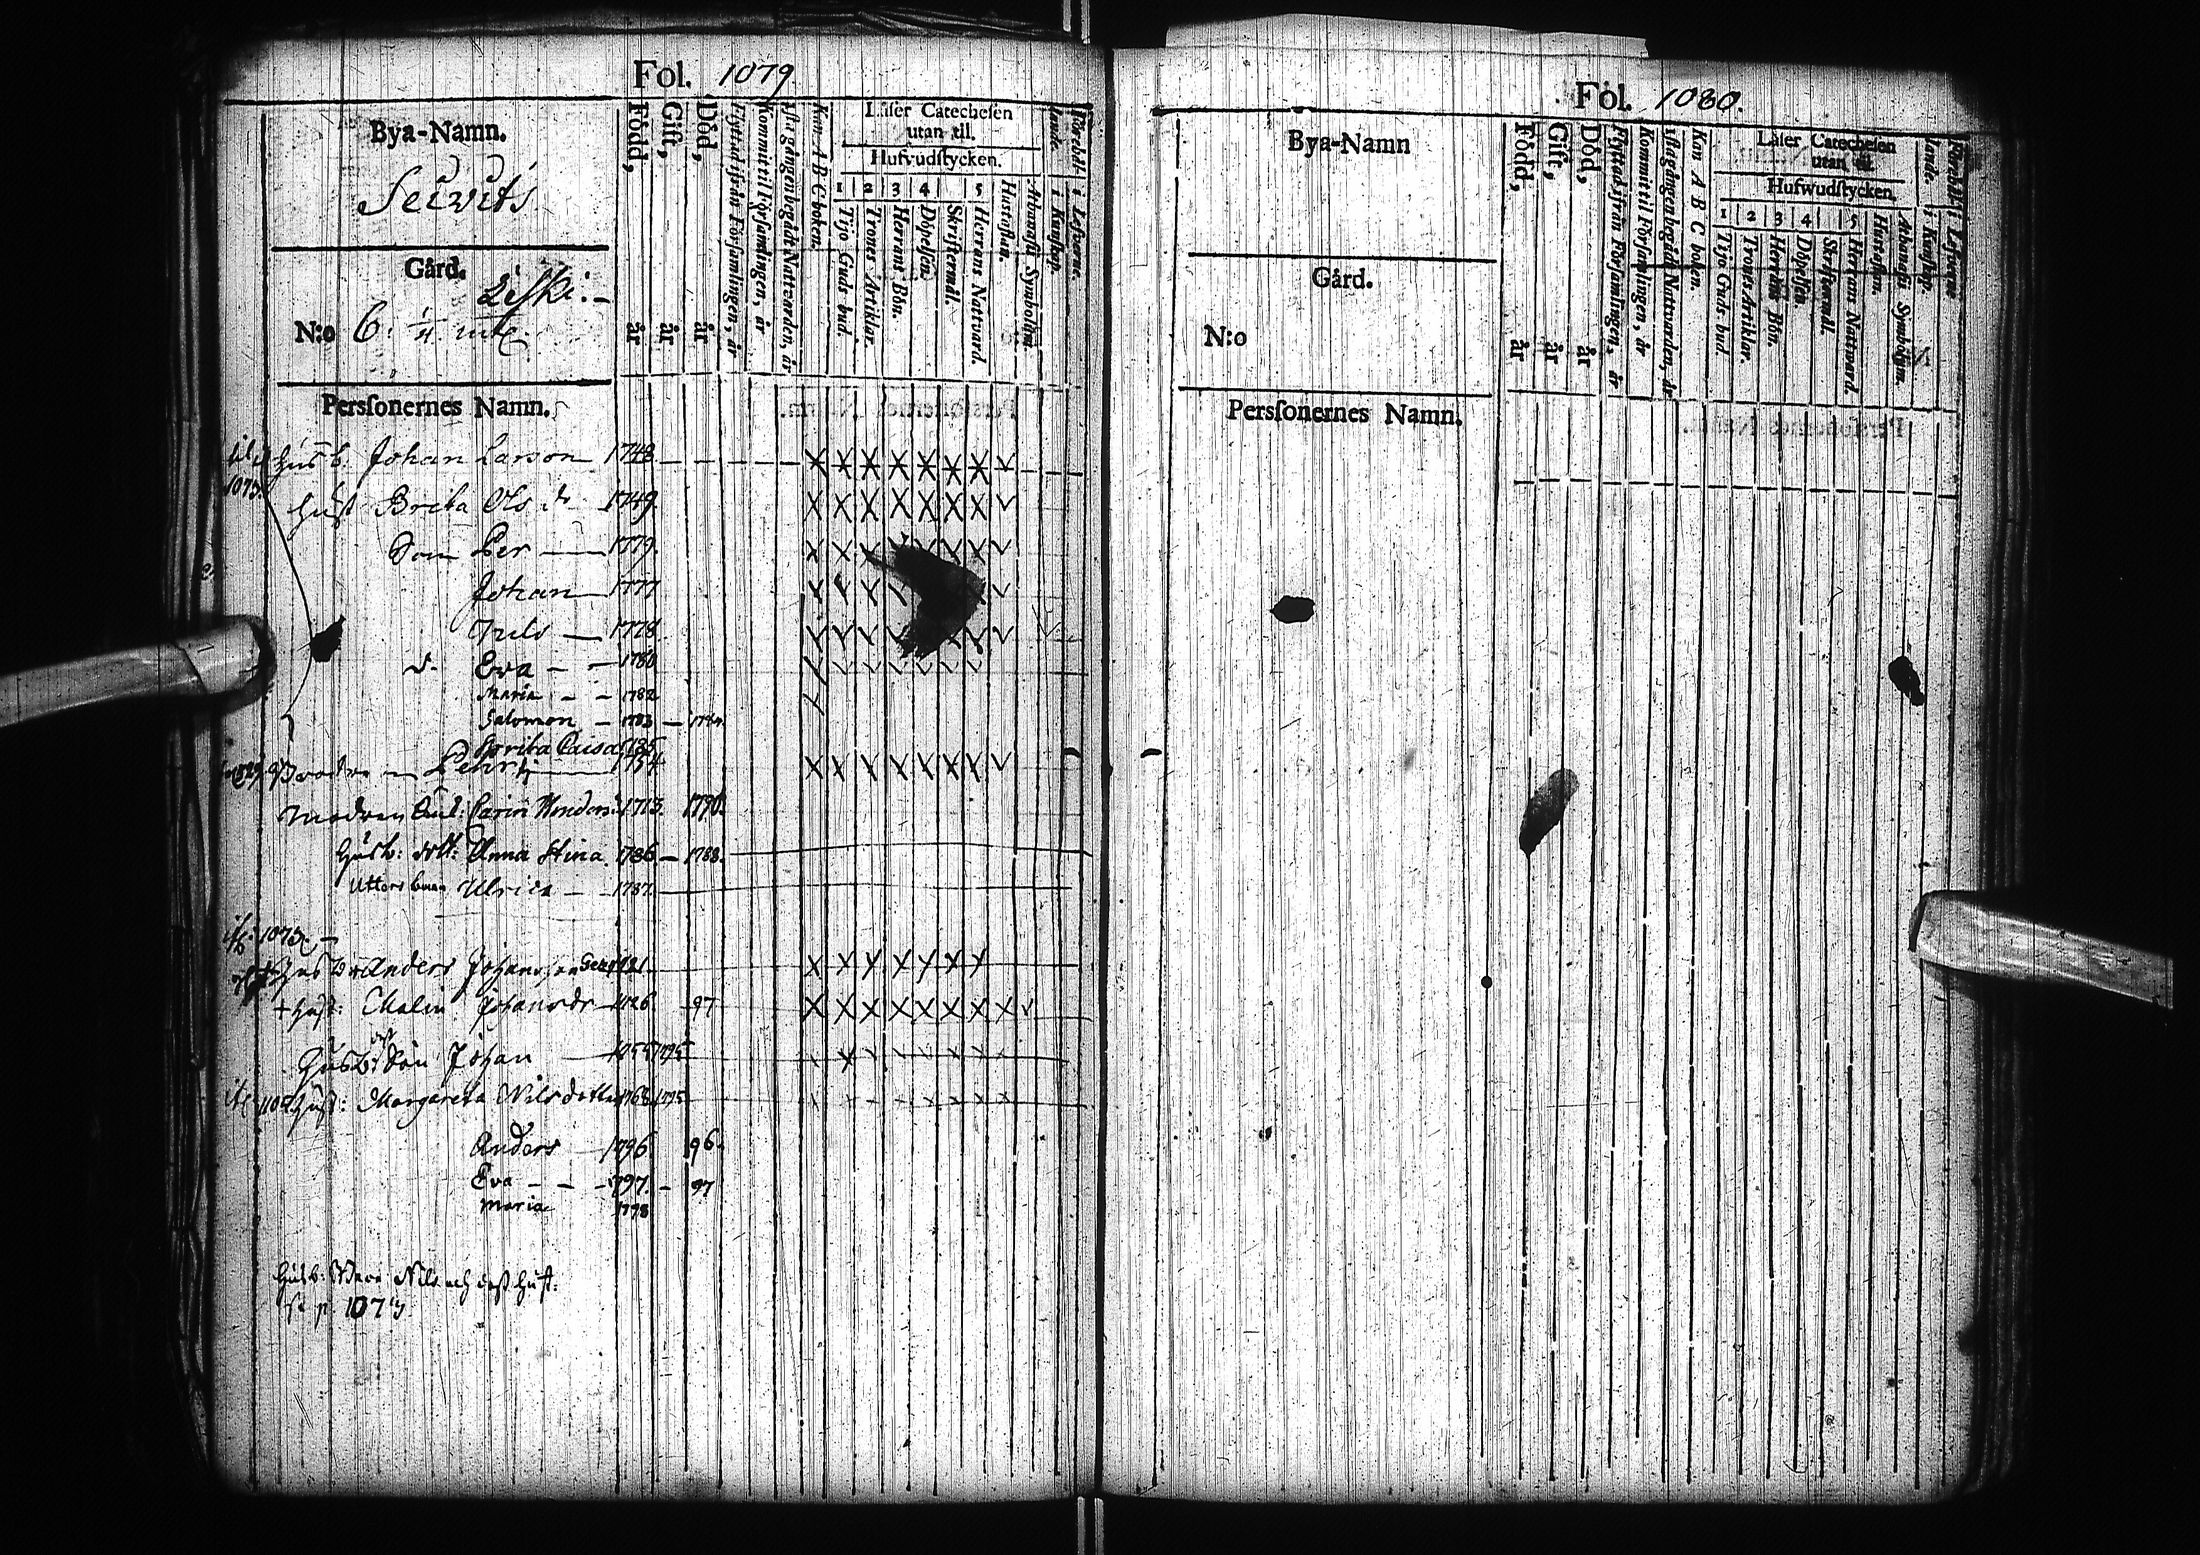 Fol. 1079
Bya-Namn.
Gård.
N:o 6. 1/4
Född, år
Gift, år
Död, år
Flyttad ifrån Församlingen, år
Kommit til Församlingen, år
1sta gången begådt Nattvarden, år
Kan A B C boken.
Läser Catechesen
utan til.
Hufvudstycken.
1 2 3 4 5
Tijo Guds bud.
Trones Artiklar.
Herrans Bön.
Döpelsen.
Skriftermål.
Herrans Nattvard.
Hustaflan.
Athanasii Symbolum.
i Kunskap.
i Lefverne.
Personernes Namn.
1073.
Husb. Johan Larson 1748
Hust Brita Ols dr 1749.
Son Per 1779.
Johan 1777
Nils 1778
d. Eva 1780
Maria 1782
Salomon 1783
Brita Caisa 1785
1754
Modren Enk: Carin 1713. 1790.
Husb: dott: Anna Stina 1786 1788.
Ulrica 1787.
1073
Husb Anders Johansson 1721
+ Hust: Malin Johansdr 1726 97
Husb: Son Johan 1755 1795
Hust: Margareta Nilsdotter 1768 1795
Anders 1796 96.
Eva 1797. 97
Maria 1798
Husb: Nils och dess Hust:
Fol. 1080.
Bya-Namn
Gård.
N:o
Född, år
Gift, år
Död, år
Flyttad ifrån Församlingen, år
Kommit til Församlingen, år
1sta gången begådt Nattvarden, år
Kan A B C boken.
Läser Catechesen
utan til.
Hufwudstycken.
1 2 3 4 5
Tijo Guds bud.
Trones Artiklar.
Herrans Bön.
Döpelsen.
Skriftermål.
Herrans Nattward.
Hustaflan.
Athanasii Symbolum.
i Kunskap.
i Lefverne
Personernes Namn.